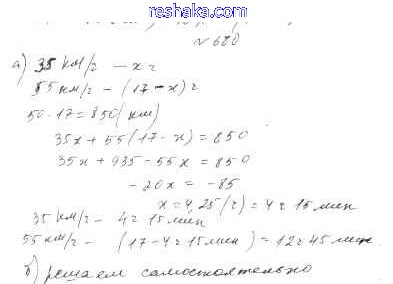 reshaka.com
№680
а) 35 км/г — х г
55 км/г — (17 - х) г
50 · 17 = 850 (км)
35х + 55 (17 - х) = 850
35х + 935 - 55х = 850
- 20х = - 85
х = 4,25 (г) = 4 г 15 мин
35 км/г - 4 г 15 мин
55 км/г - (17 - 4 г 15 мин) = 12 г 45 мин.
б) решаем самостоятельно